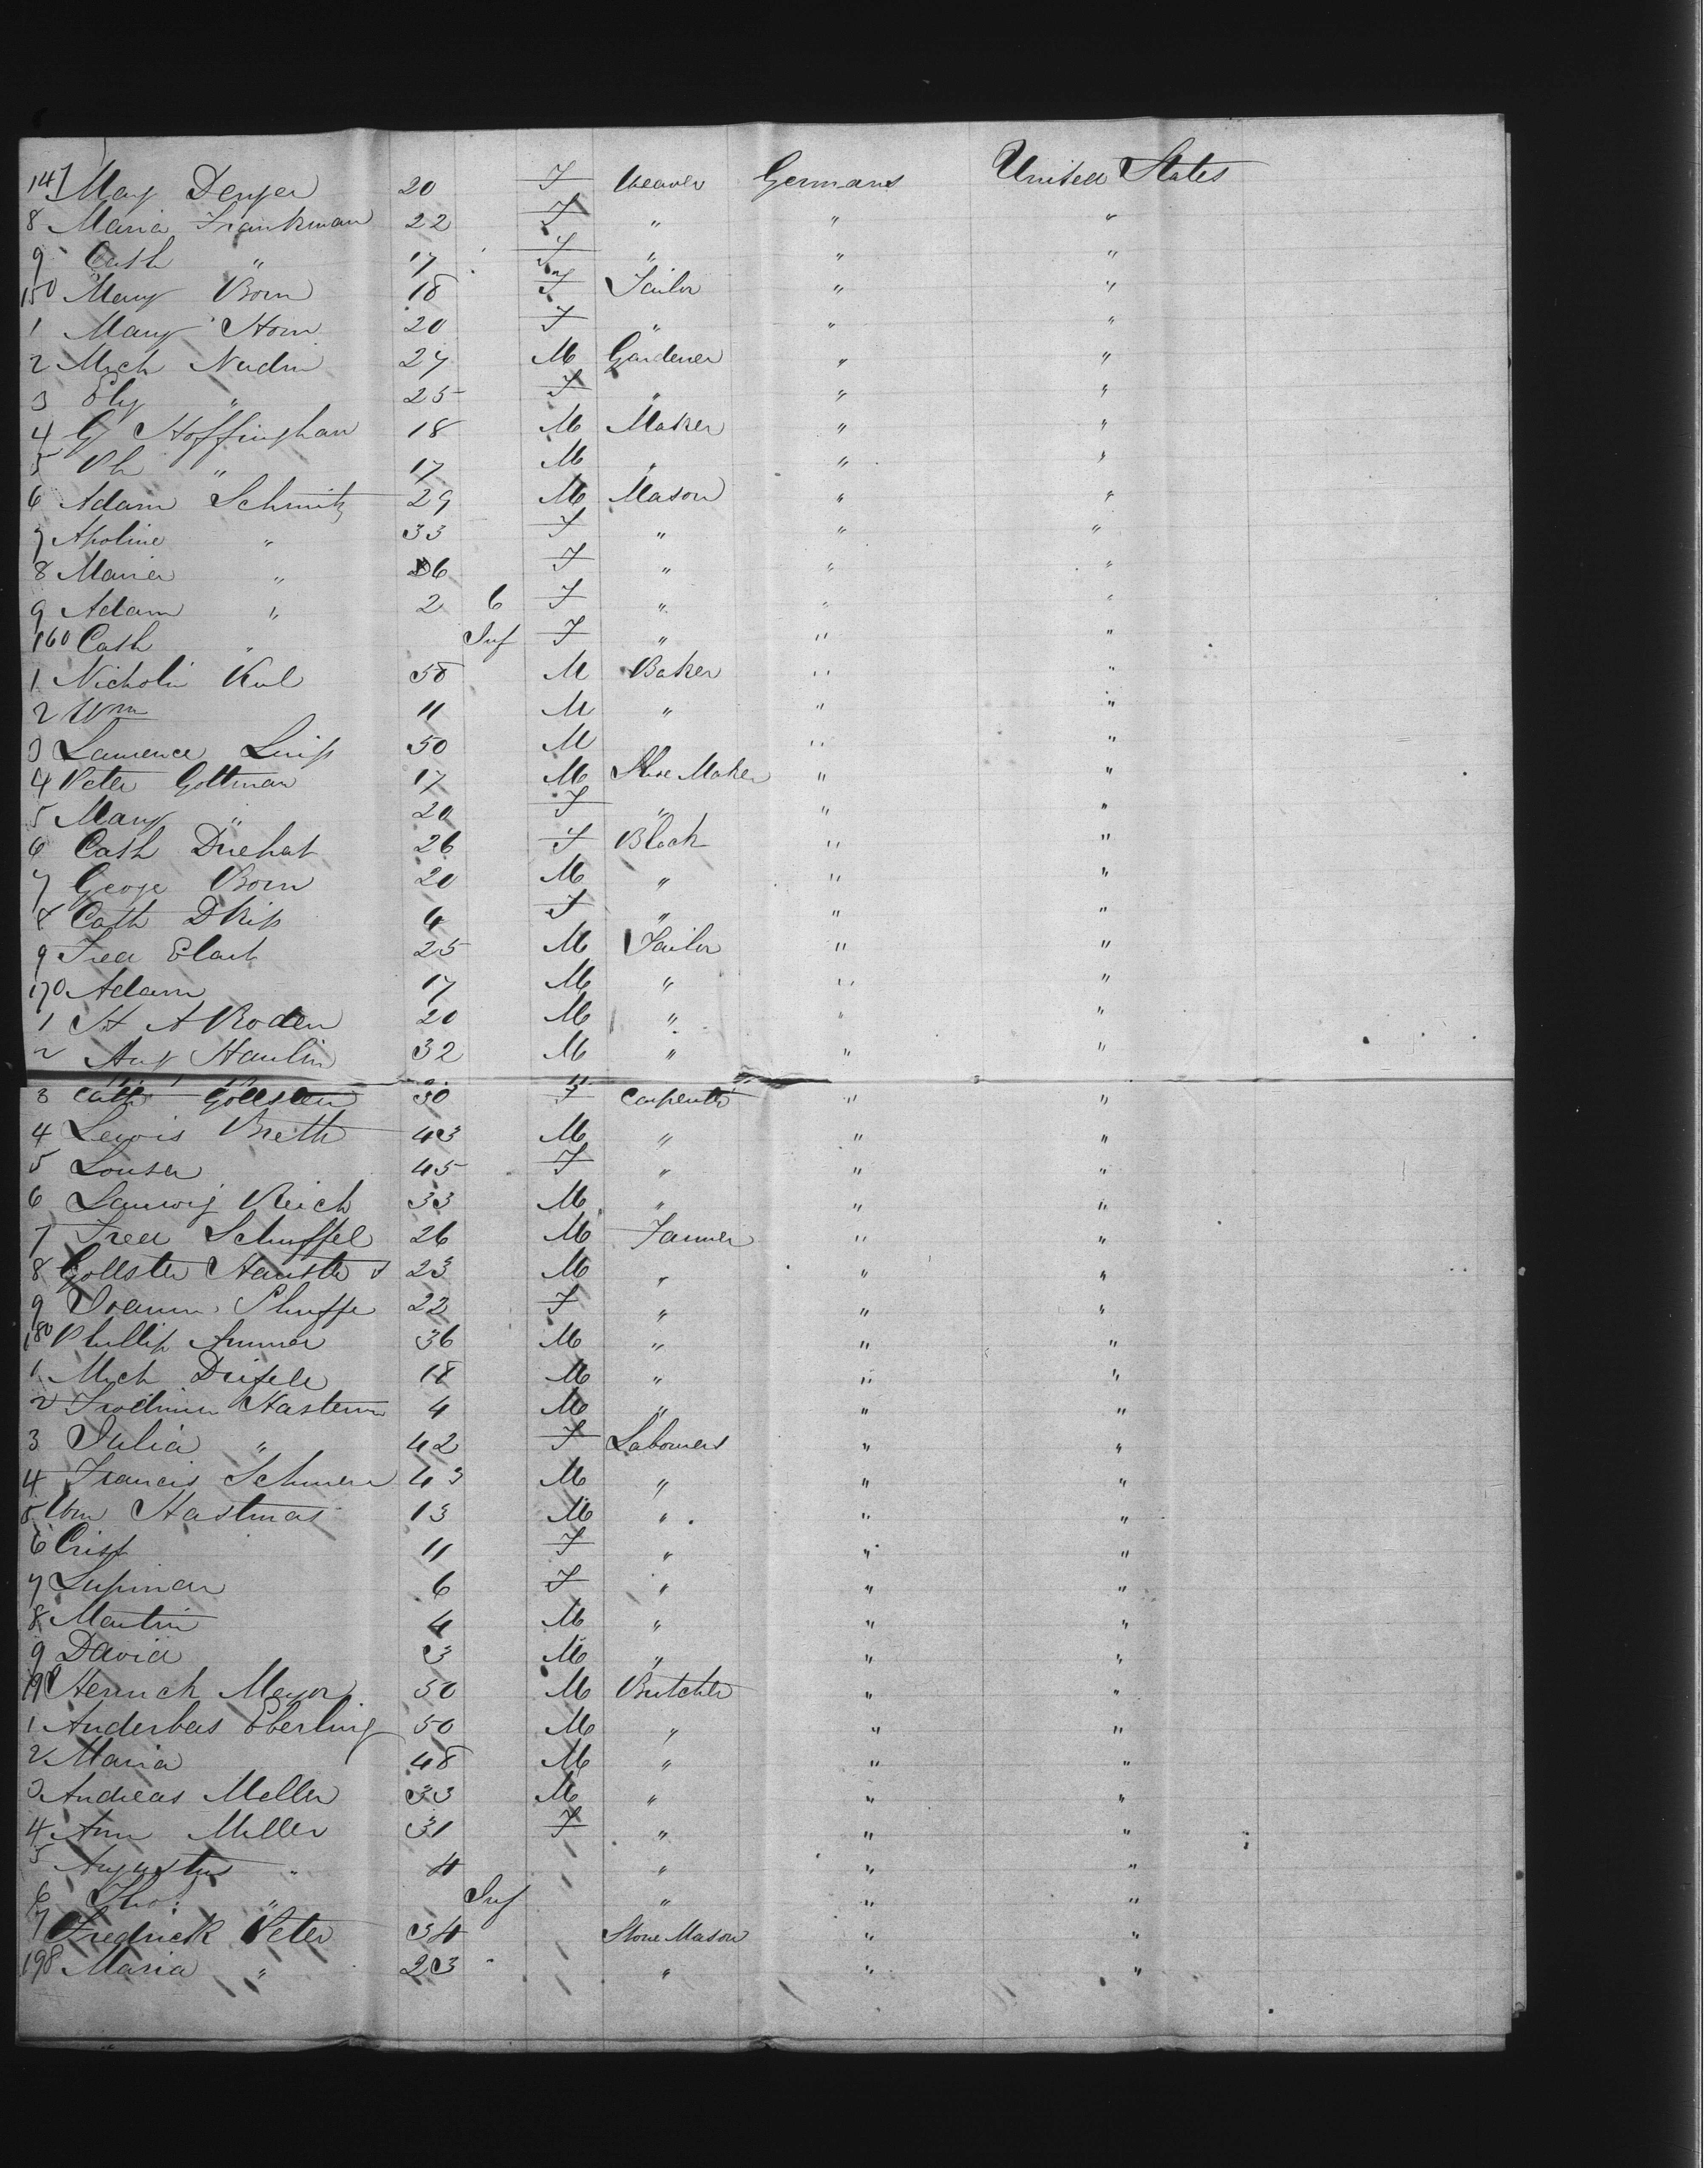 147 Mary Denger 20 F Weaver Germans United States
8 Maria Frankman 22 F " " "
9 Cath " 17 F " " "
150 Mary Born 18 F Tailor " "
1 Mary Horn 20 F " " "
2 Mich Nudin 27 M Gardener " "
3 Ely " 25 F " " "
4 G Hoffinghan 18 M Maker " "
5 Ph " 17 M " " "
6 Adam Schmitz 29 M Mason " "
7 Apoline " 33 F " " "
8 Maria " 26 F " " "
9 Adam " 2 6 F " " "
160 Cath " Inf F " " "
1 Nicholi Kul 58 M Baker " "
2 Wm 11 M " " "
3 Laurence 50 M " "
4 Peter Gottman 17 M Shoe Maker " "
5 Mary " 20 F " " "
6 Cath Duehat 26 F Black " "
7 Geoge Born 20 M " " "
8 Cath 4 F " " "
9 Fred Elart 25 M Tailor " "
170 Adam 17 M " " "
1 St A Roden 20 M " " "
2 Aug Haulin 32 M " " "
3 Cath 30 F Carpenter " "
4 Lewis Breth 43 M " " "
5 Lousa 45 F " " "
6 Lauwig Reich 33 M " " "
7 Fred Schuffel 26 M Farmer " "
8 Gollster 23 M " " "
9 22 F " " "
180 Phillip Ammer 36 M " " "
1 Mich 18 M " " "
2 Hasterm 4 M " " "
3 Julia " 42 F Labourers " "
4 Francis Schmerr 43 M " " "
5 Wm Hastmas 13 M " " "
6 Crist 11 F " " "
7 6 F " " "
8 Martin 4 M " " "
9 David 3 M " " "
190 Henrich Meyor 50 M Butcher " "
1 Anderbas Eberling 50 M " " "
2 Maria 48 M " " "
3 Andreas Meller 33 M " " "
4 Ann Miller 31 F " " "
5 Augustus " 4 " " "
6 Tho: " Inf " " "
7 Fredrick Peter 34 Stone Mason " "
198 Maria " 23 " " "